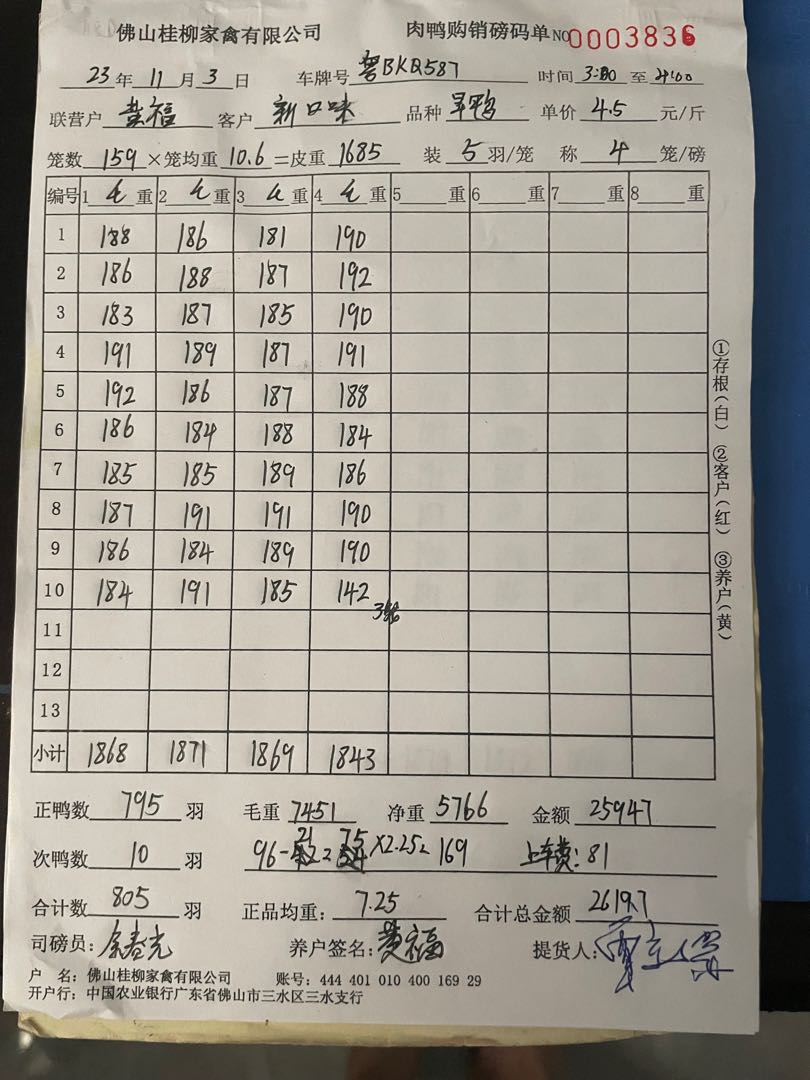 佛山桂柳家禽有限公司 肉鸭购销磅码单 NO 0003836
23年11月3日 车牌号 粤BKQ587 时间 3:00 至 4:00
联营户 黄福 客户 新口味 品种 单价 4.5 元/斤
笼数 159 ×笼均重 10.6 =皮重 1685 装 5 羽/笼 称 4 笼/磅
编号 1 毛 重 2 毛 重 3 毛 重 4 毛 重 5 重 6 重 7 重 8 重
1 188 186 181 190
2 186 188 187 192
3 183 187 185 190
4 191 189 187 191
5 192 186 187 188
6 186 184 188 184
7 185 185 189 186
8 187 191 191 190
9 186 184 189 190
10 184 191 185 142
11
12
13
小计 1868 1871 1869 1843
①存根(白) ②客户(红) ③养户(黄)
正鸭数 795 羽 毛重 7451 净重 5766 金额 25947
次鸭数 10 羽 96-21= 75 ×2.25= 169 上车费:81
合计数 805 羽 正品均重: 7.25 合计总金额 26197
司磅员: 余春光 养户签名: 黄福 提货人:
户 名: 佛山桂柳家禽有限公司 账号: 444 401 010 400 169 29
开户行: 中国农业银行广东省佛山市三水区三水支行